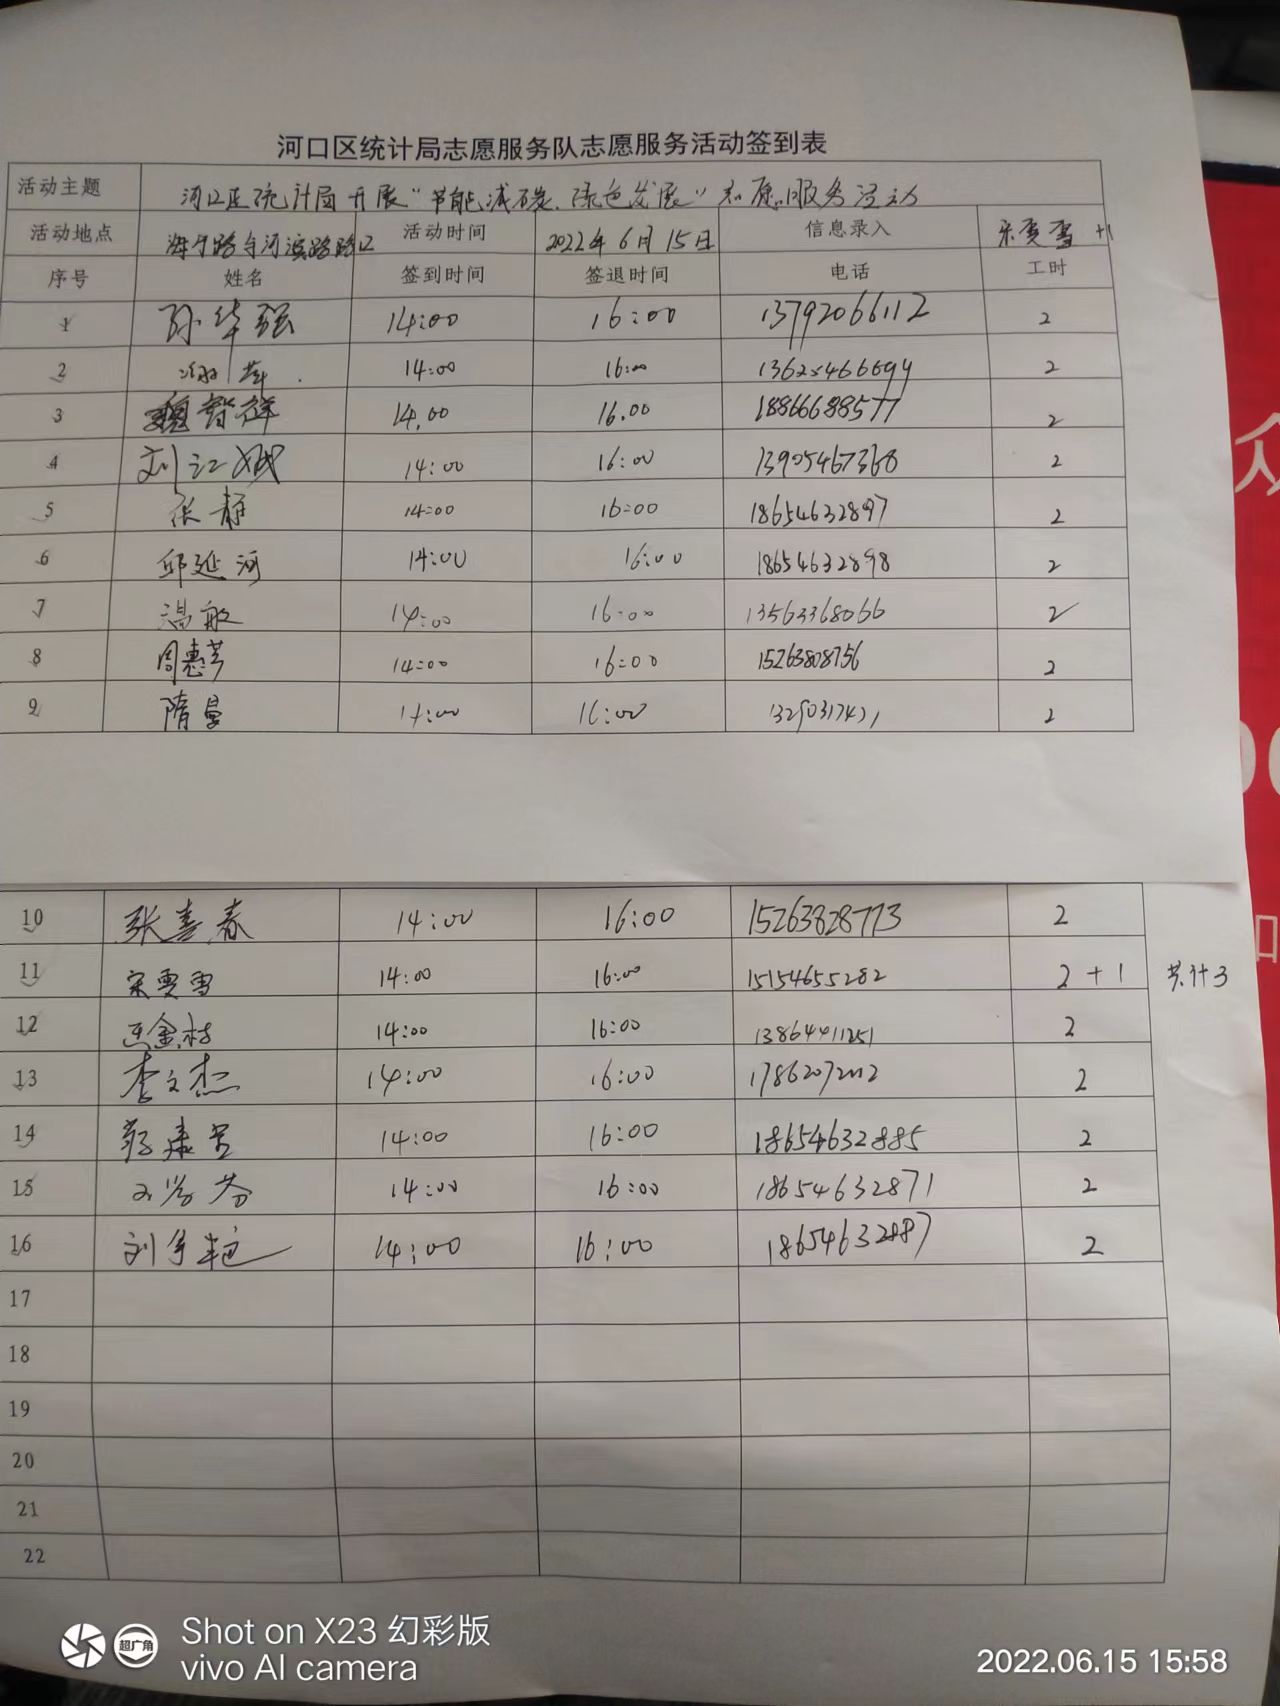 河口区统计局志愿服务队志愿服务活动签到表
活动主题 河口区统计局开展“节能减碳、绿色发展”志愿服务活动
活动地点 海宁路与河滨路路口 活动时间 2022年6月15日 信息录入 宋雯雪 +1
序号 姓名 签到时间 签退时间 电话 工时
1 孙华强 14:00 16:00 13792066112 2
2 14:00 16:00 2
3 魏智祥 14.00 16.00 18866688577 2
4 刘江城 14:00 16:00 13905467368 2
5 张静 14:00 16:00 18654632897 2
6 邱延河 14:00 16:00 18654632898 2
7 温敏 14:00 16:00 13563368066 2
8 周惠芳 14:00 16:00 15263808756 2
9 隋曼 14:00 16:00 2
10 张喜春 14:00 16:00 15263828773 2
11 宋雯雪 14:00 16:00 15154655282 2+1 共计3
12 14:00 16:00 13864411251 2
13 李文杰 14:00 16:00 2
14 14:00 16:00 18654632885 2
15 14:00 16:00 18654632871 2
16 14:00 16:00 18654632887 2
17
18
19
20
21
22
超广角
Shot on X23 幻彩版
vivo AI camera
2022.06.15 15:58
众